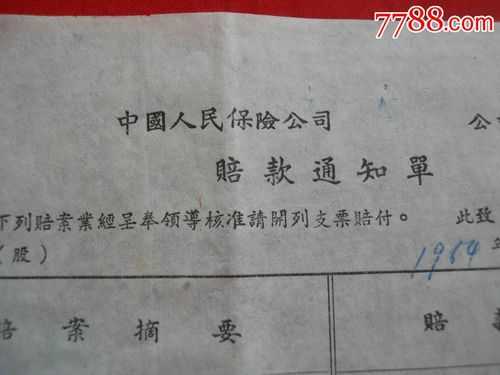 7788.com
中國人民保險公司 公
賠款通知單
下列賠案業經呈奉領导核准請開列支票賠付。 此致
(股) 1964年
賠案摘要 賠